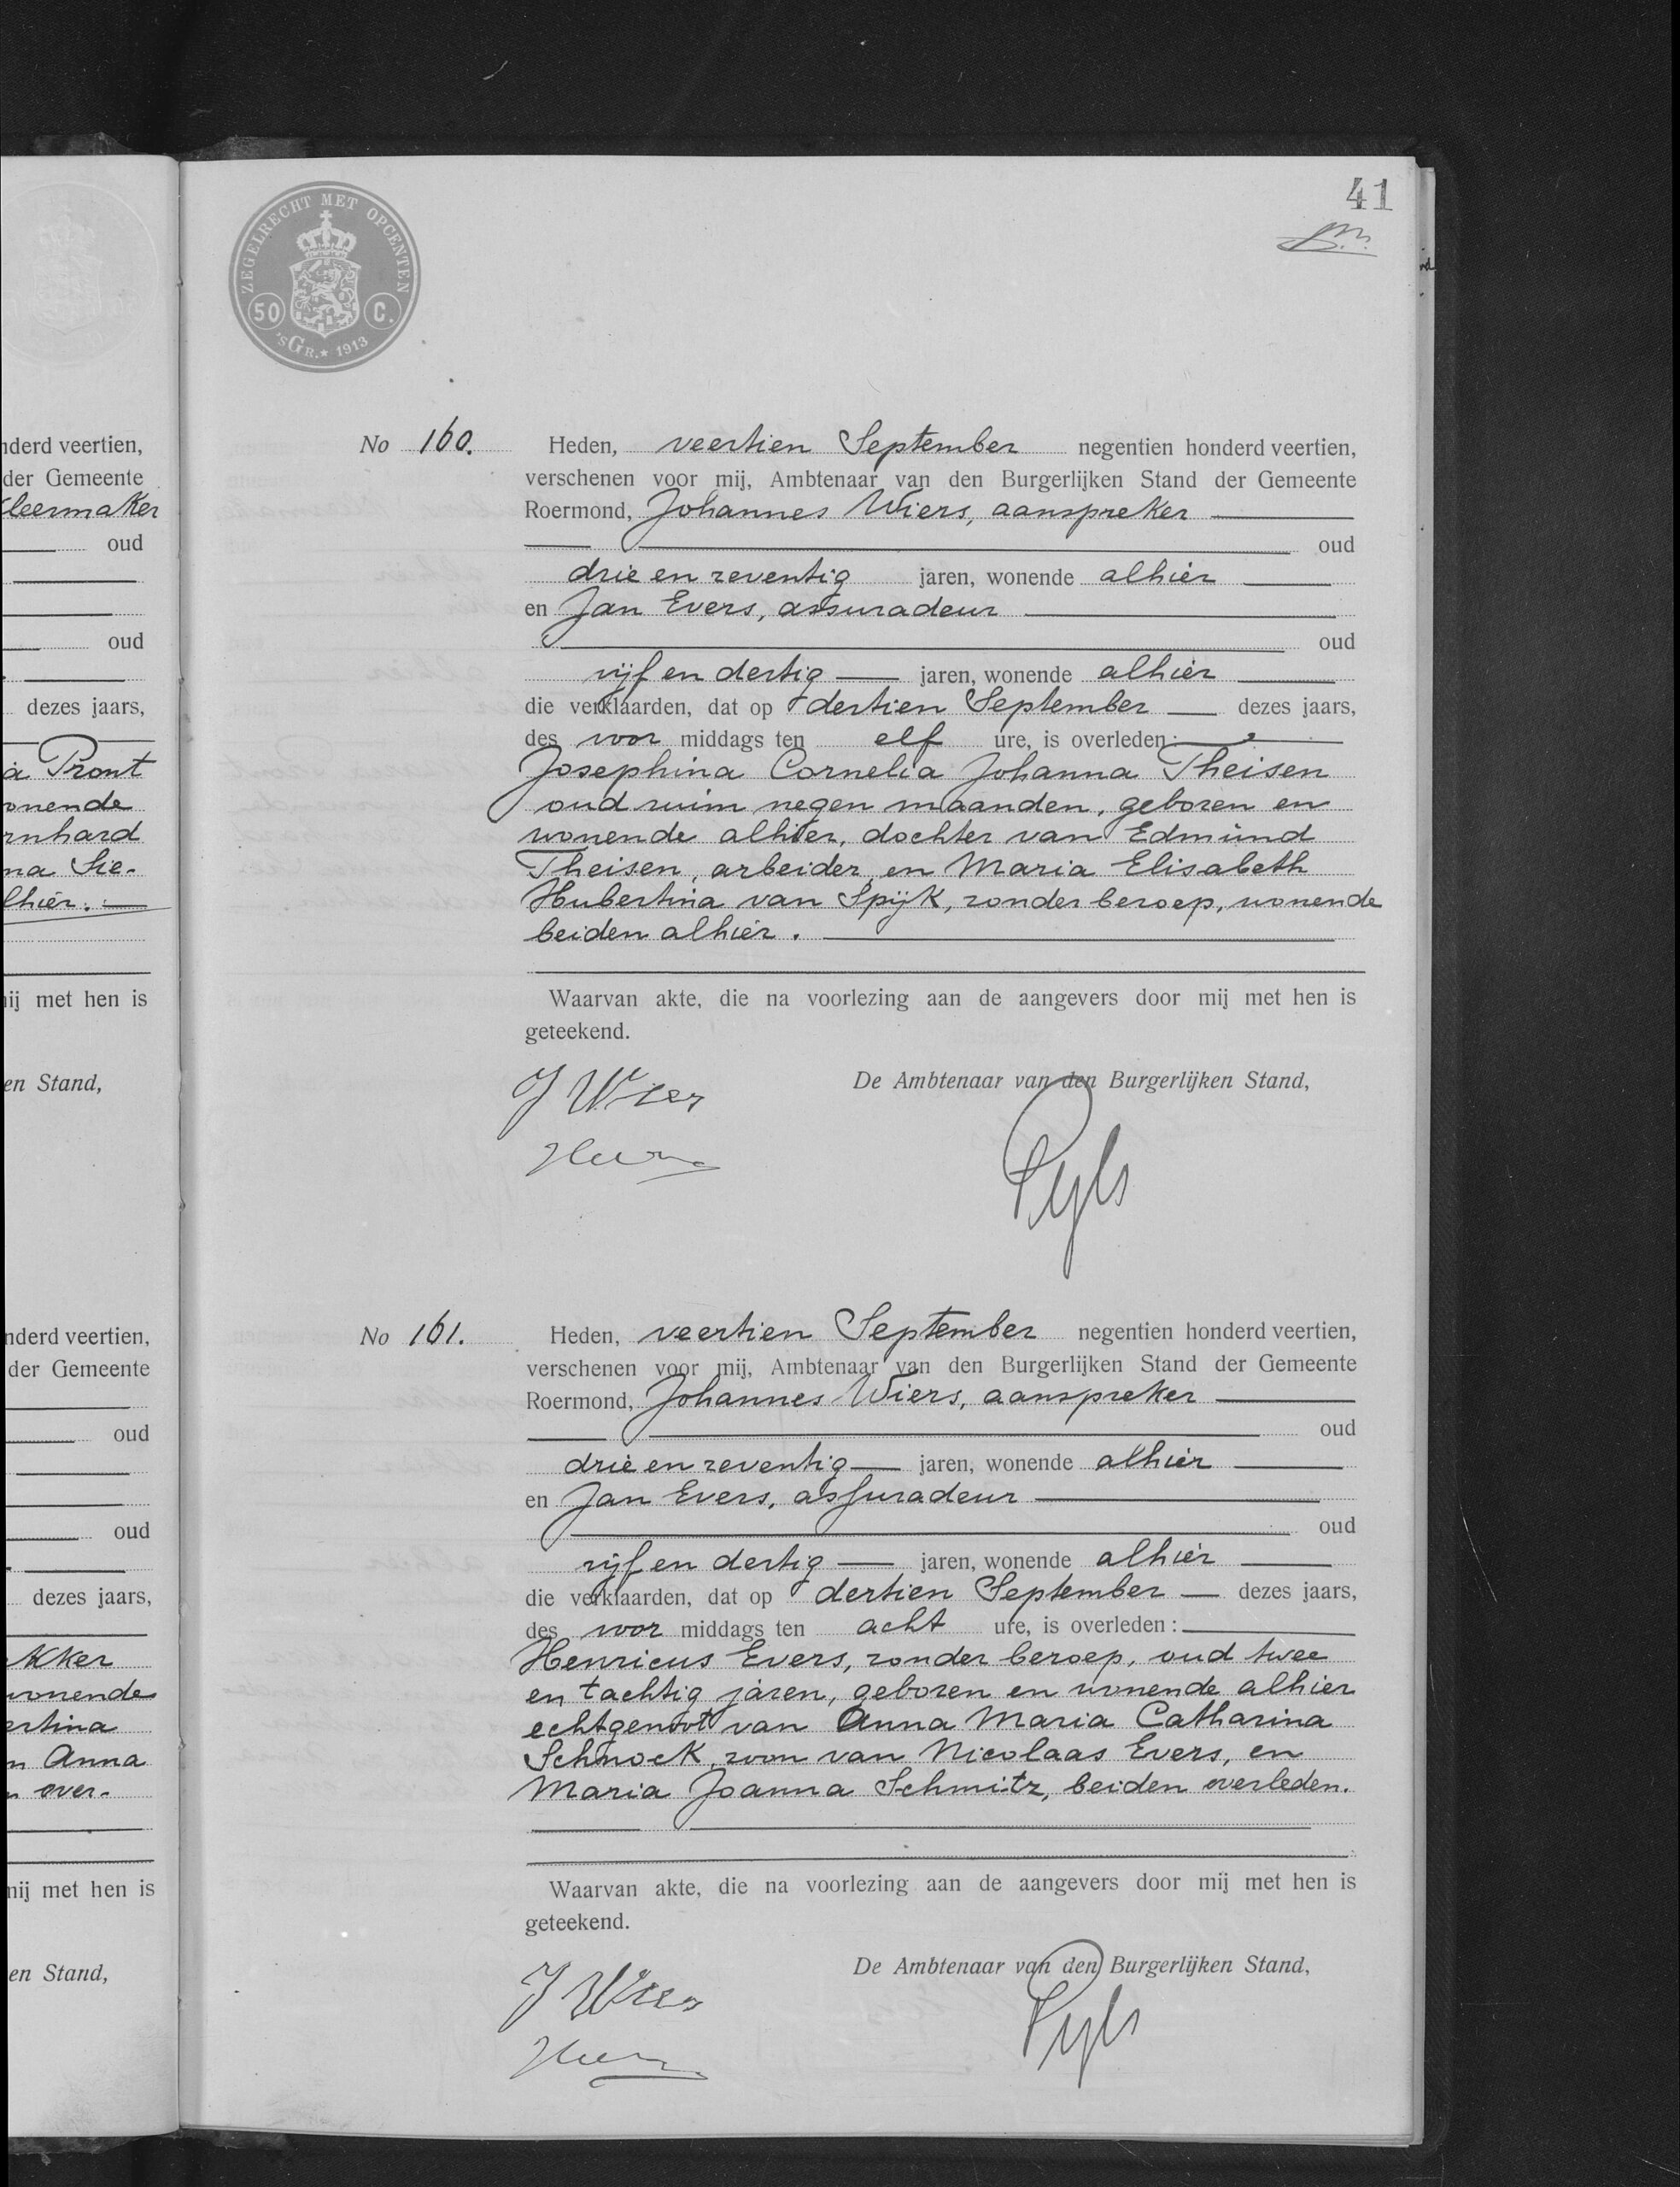 nderd veertien,
der Gemeente
kleermaker
oud
oud
dezes jaars,
a Pront
onende
rnhard
na Sie-
lhier.
ij met hen is
en Stand,
nderd veertien,
der Gemeente
oud
oud
dezes jaars,
kker
wonende
ertina
n Anna
over-
mij met hen is
en Stand,
ZEGELRECHT MET OPCENTEN
50 C.
'sGR. ★ 1913
41
No 160. Heden, veertien September negentien honderd veertien,
verschenen voor mij, Ambtenaar van den Burgerlijken Stand der Gemeente
Roermond, Johannes Wiers, aanspreker
oud
drie en zeventig jaren, wonende alhier
en Jan Evers, assuradeur
oud
vijf en dertig jaren, wonende alhier
die verklaarden, dat op dertien September dezes jaars,
des voor middags ten elf ure, is overleden:
Josephina Cornelia Johanna Theisen
oud ruim negen maanden, geboren en
wonende alhier, dochter van Edmund
Theisen, arbeider, en Maria Elisabeth
Hubertina van Spijk, zonder beroep, wonende
beiden alhier.
Waarvan akte, die na voorlezing aan de aangevers door mij met hen is
geteekend.
De Ambtenaar van den Burgerlijken Stand,
J Wiers
Pyls
No 161. Heden, veertien September negentien honderd veertien,
verschenen voor mij, Ambtenaar van den Burgerlijken Stand der Gemeente
Roermond, Johannes Wiers, aanspreker
oud
drie en zeventig jaren, wonende alhier
en Jan Evers, assuradeur
oud
vijf en dertig jaren, wonende alhier
die verklaarden, dat op dertien September dezes jaars,
des voor middags ten acht ure, is overleden:
Henricus Evers, zonder beroep, oud twee
en tachtig jaren, geboren en wonende alhier
echtgenoot van Anna Maria Catharina
Schnock, zoon van Nicolaas Evers, en
Maria Joanna Schmitz, beiden overleden.
Waarvan akte, die na voorlezing aan de aangevers door mij met hen is
geteekend.
De Ambtenaar van den Burgerlijken Stand,
J Wiers
Pyls